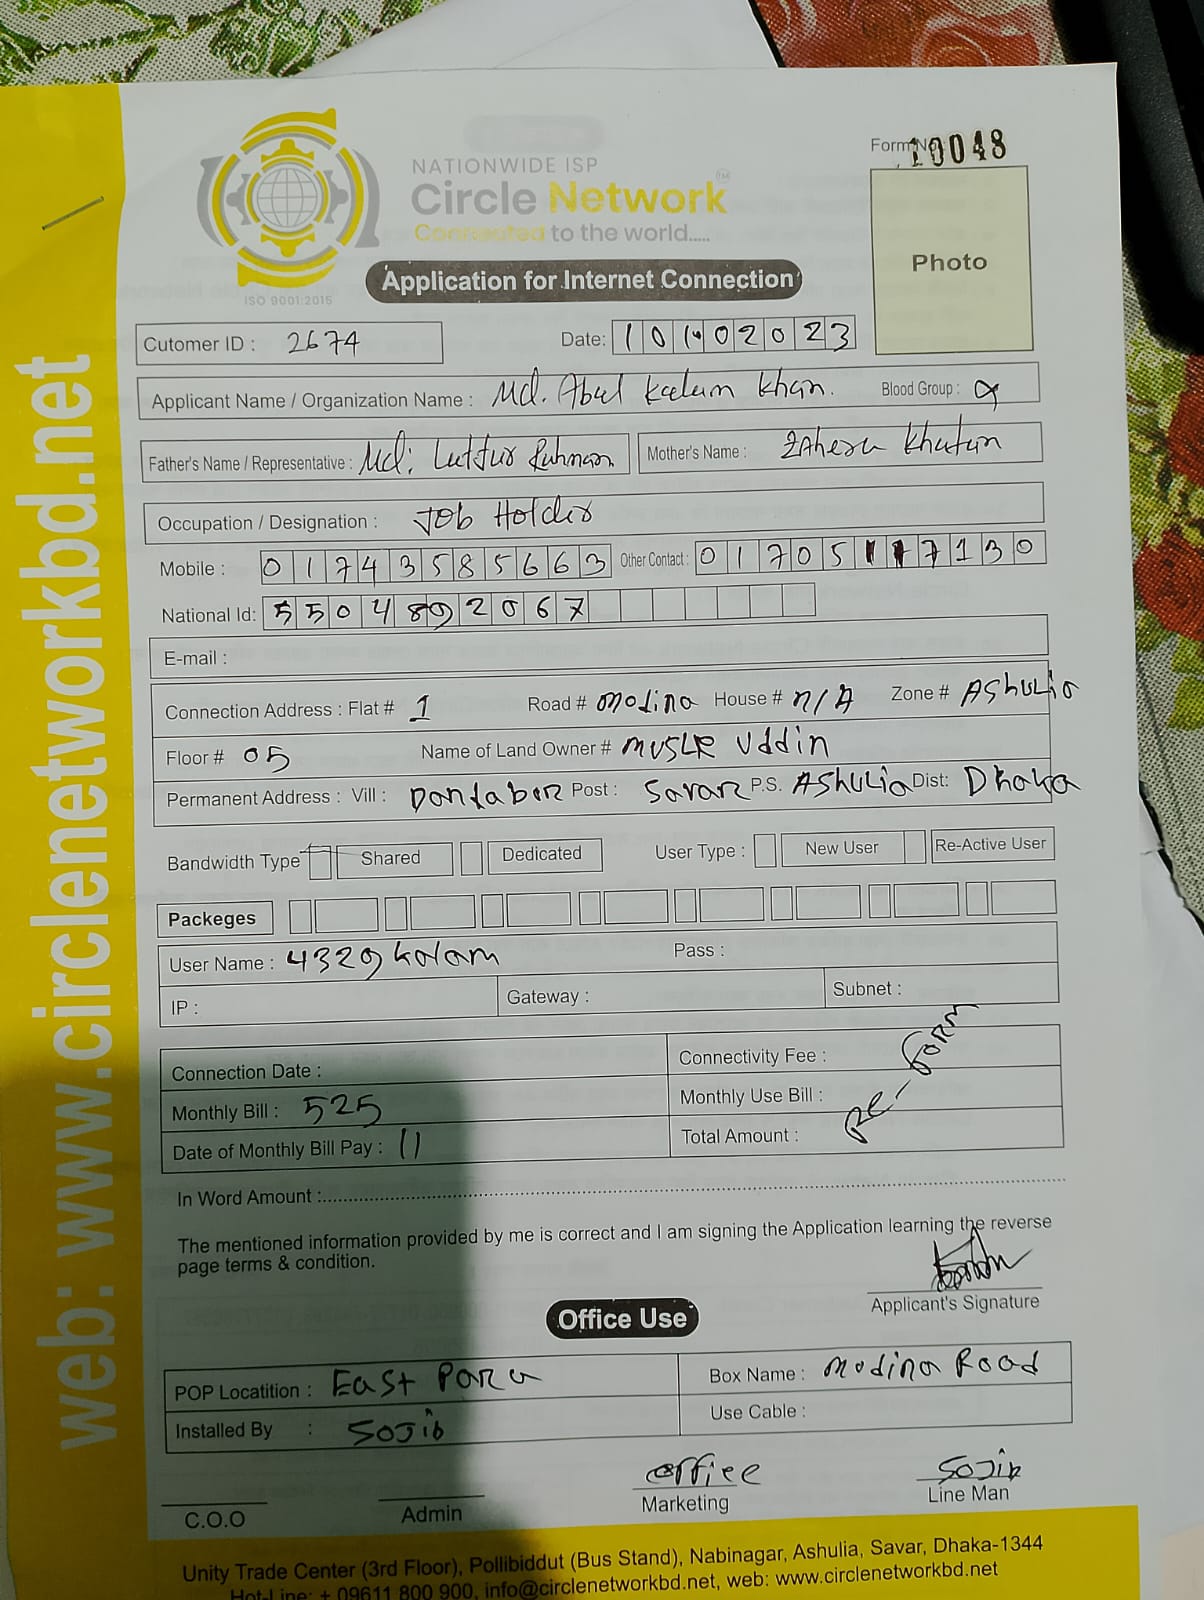 Form No 10048
NATIONWIDE ISP
Circle Network TM
Connected to the world.....
ISO 9001:2015
Application for Internet Connection
Photo
Cutomer ID : 2674 Date: 10 02023
Applicant Name / Organization Name : Md. Abul Kalam Khan. Blood Group :
Father's Name / Representative : Md: Lutfur Rahman Mother's Name : Zahera Khatun
Occupation / Designation : Job Holder
Mobile : 01743585663 Other Contact : 01705117130
National Id: 5504892067
E-mail :
Connection Address : Flat # 1 Road # modina House # n/A Zone # AShuLia
Floor # 05 Name of Land Owner # muSLR Uddin
Permanent Address : Vill : Dontabor Post : Savar P.S. AShuLia Dist: Dhaka
Bandwidth Type Shared Dedicated User Type : New User Re-Active User
Packeges
User Name : 4329kalam Pass :
IP : Gateway : Subnet :
Connection Date : Connectivity Fee :
Monthly Bill : 525 Monthly Use Bill :
Date of Monthly Bill Pay : 11 Total Amount :
Re-Form
In Word Amount :
The mentioned information provided by me is correct and I am signing the Application learning the reverse
page terms & condition.
Applicant's Signature
Office Use
POP Locatition : East Para Box Name : modina Road
Installed By : Sojib Use Cable :
office Sojib
C.O.O Admin Marketing Line Man
Unity Trade Center (3rd Floor), Pollibiddut (Bus Stand), Nabinagar, Ashulia, Savar, Dhaka-1344
Hot-Line: + 09611 800 900, info@circlenetworkbd.net, web: www.circlenetworkbd.net
web: www.circlenetworkbd.net